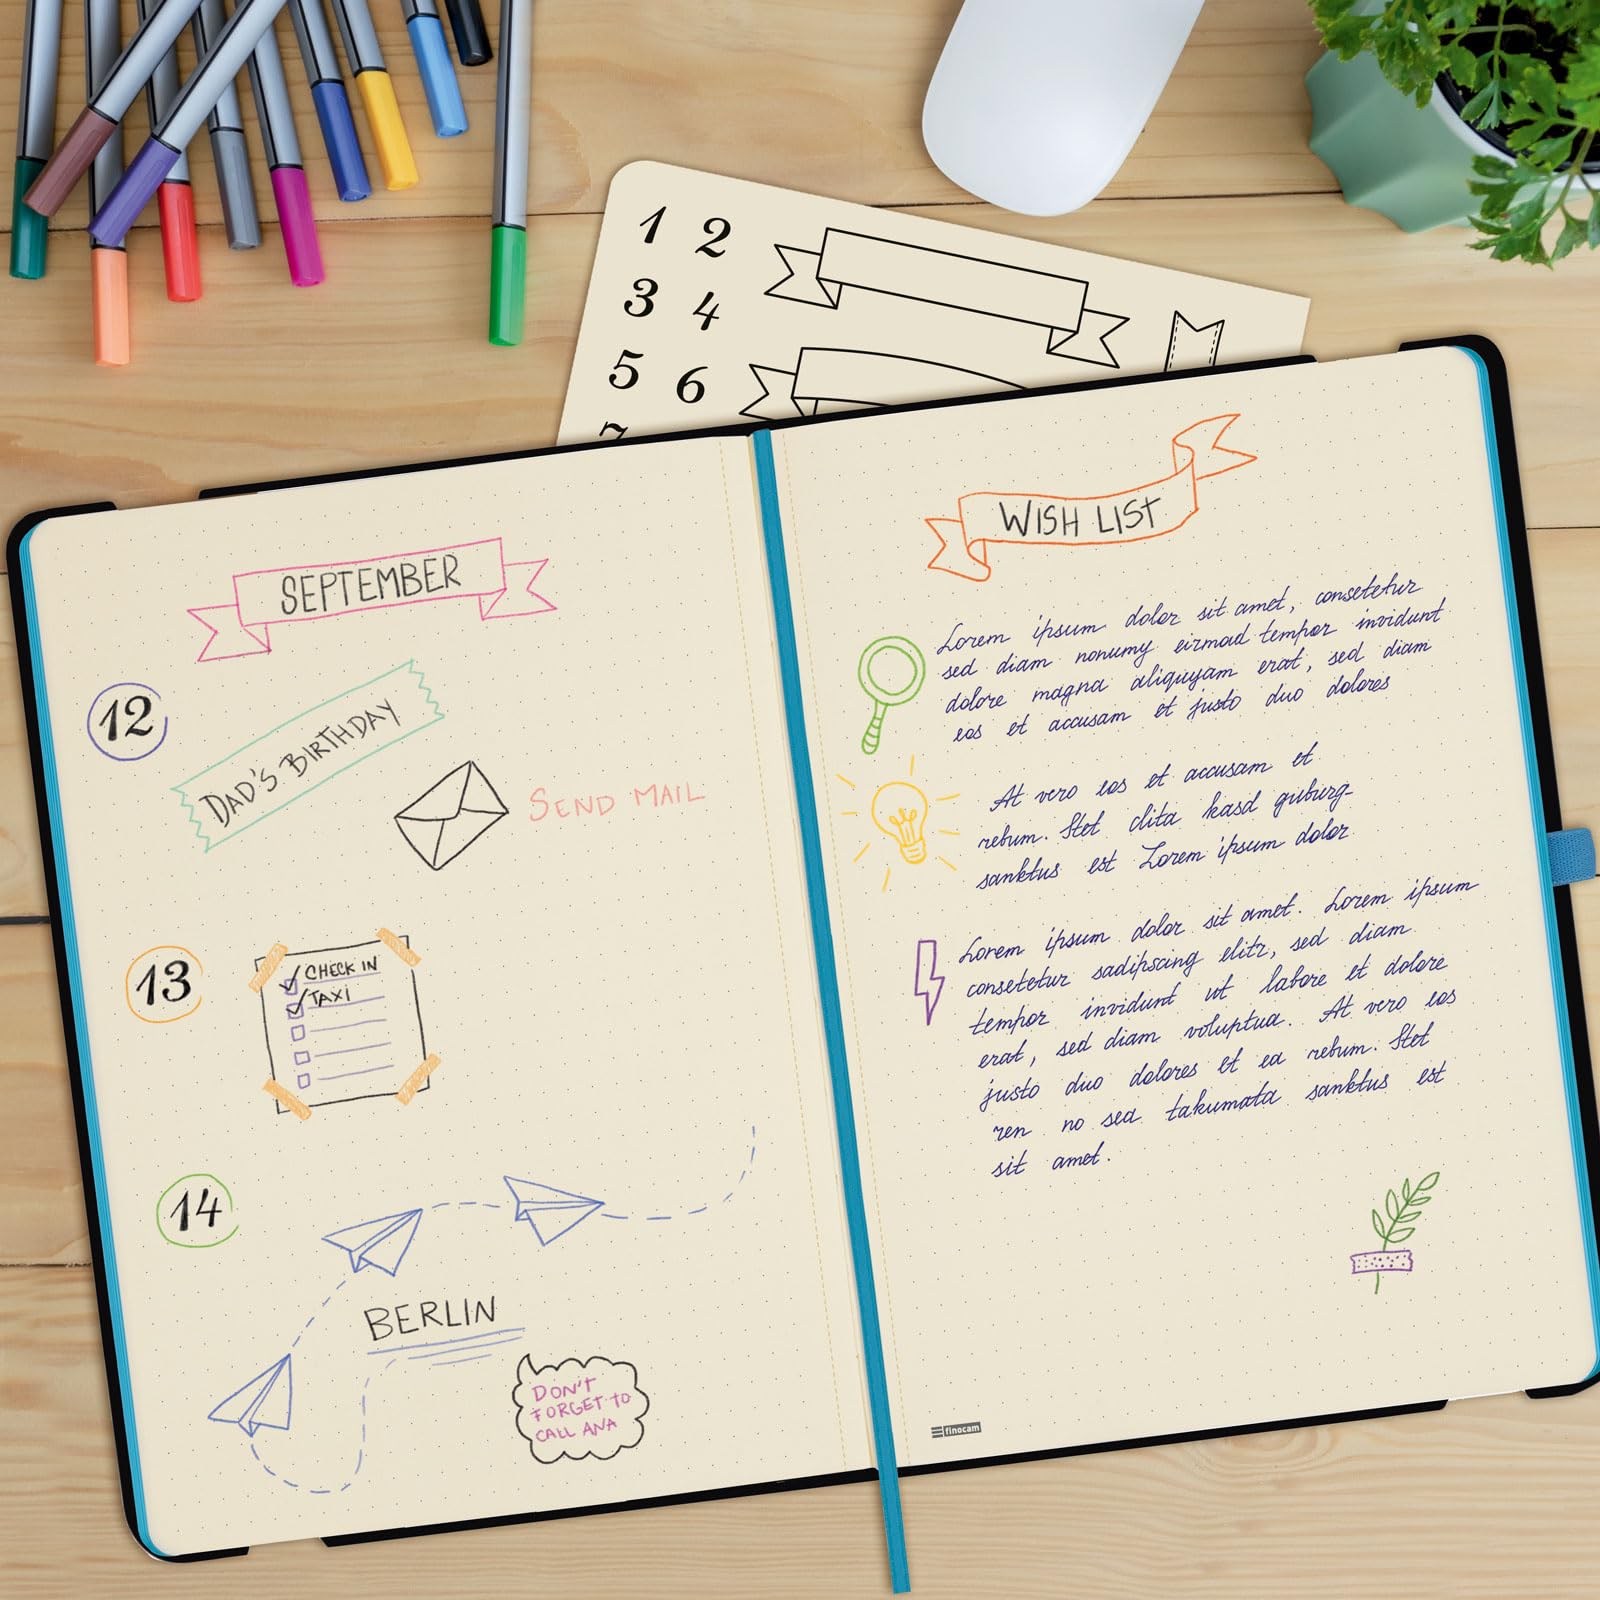 1 2
3 4
5 6
7
SEPTEMBER
12
DAD'S BIRTHDAY
SEND MAIL
13
CHECK IN
TAXI
14
BERLIN
DON'T
FORGET TO
CALL ANA
WISH LIST
Lorem ipsum dolor sit amet, consetetur
sed diam nonumy eirmod tempor invidunt
dolore magna aliquyam erat, sed diam
eos et accusam et justo duo dolores
At vero eos et accusam et
rebum. Stet clita kasd guburg-
sanktus est Lorem ipsum dolor
Lorem ipsum dolor sit amet. Lorem ipsum
consetetur sadipscing elitr, sed diam
tempor invidunt ut labore et dolore
erat, sed diam voluptua. At vero eos
justo duo dolores et ea rebum. Stet
ren no sea takumata sanktus est
sit amet.
finocam